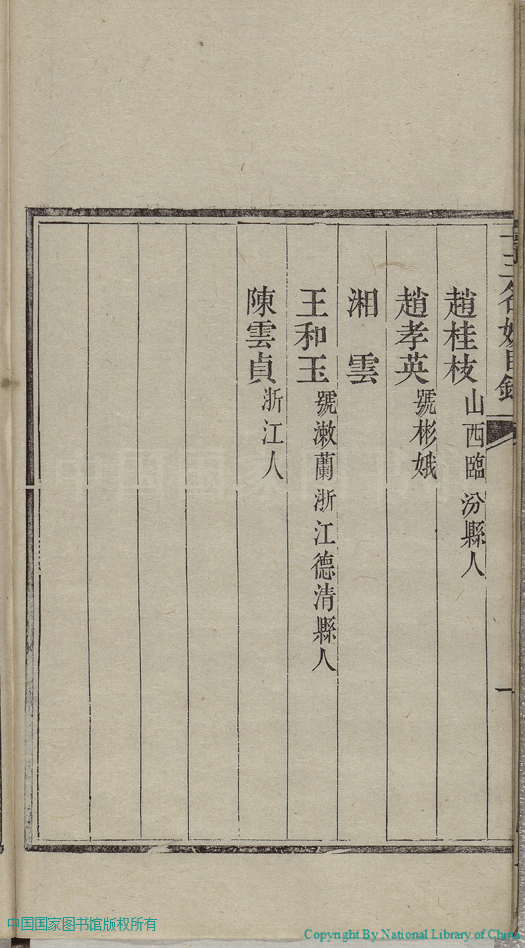 名媛目錄
一
趙桂枝 山西臨汾縣人
趙孝英 號彬娥
湘雲
王和玉 號漱蘭浙江德清縣人
陳雲貞 浙江人
中国国家图书馆版权所有
Copyright By National Library of China